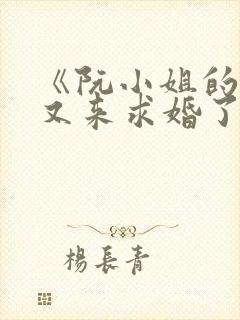 《阮小姐的
又来求婚了
楊長青